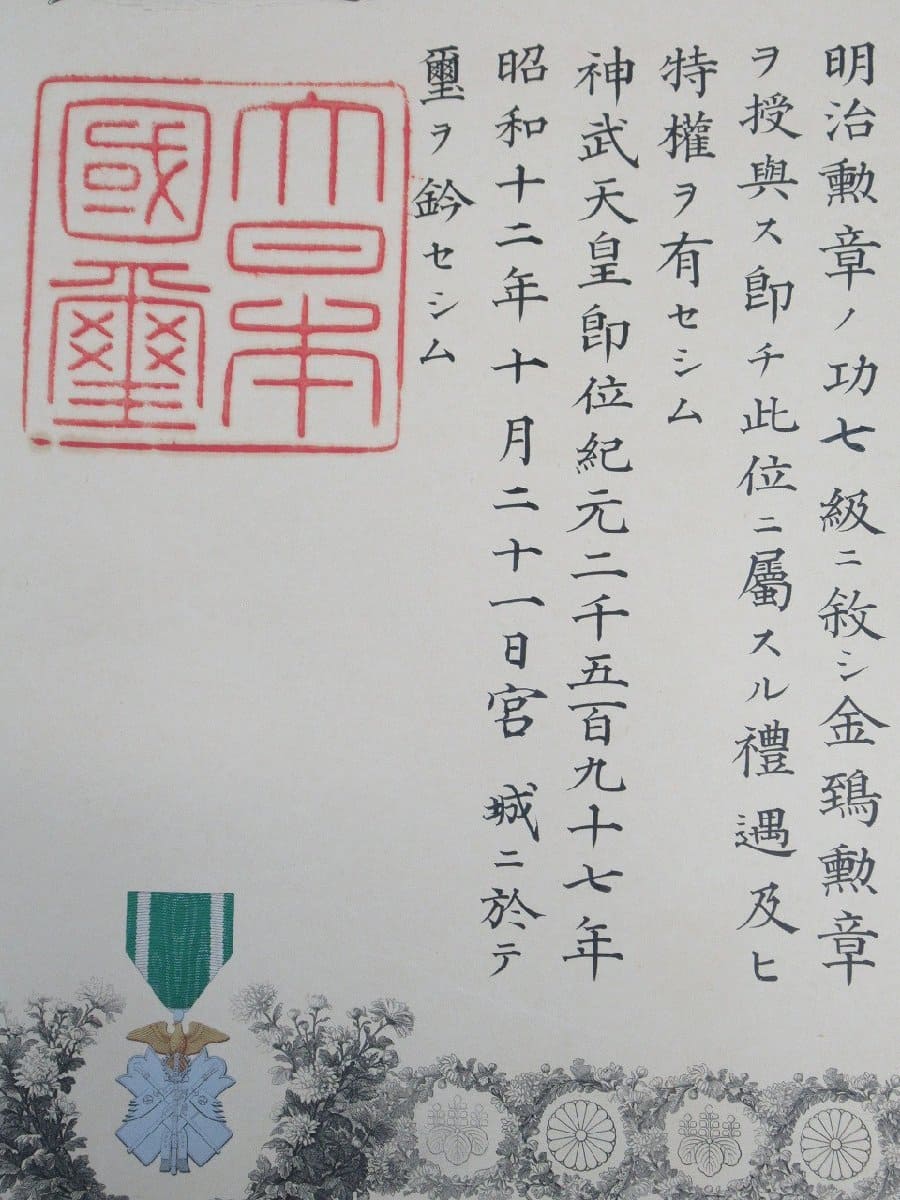 明治勲章ノ功七級ニ敘シ金鵄勲章
ヲ授與ス卽チ此位ニ屬スル禮遇及ヒ
特權ヲ有セシム
神武天皇卽位紀元二千五百九十七年
昭和十二年十月二十一日宮城ニ於テ
璽ヲ鈐セシム
大日本
國璽